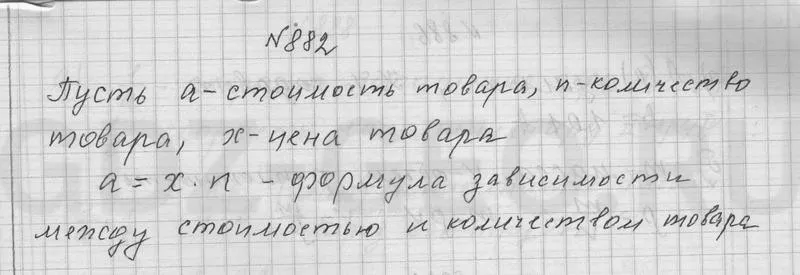 N882
Пусть a - стоимость товара, n - количество
товара, x - цена товара
a = x · n - формула зависимости
между стоимостью и количеством товара